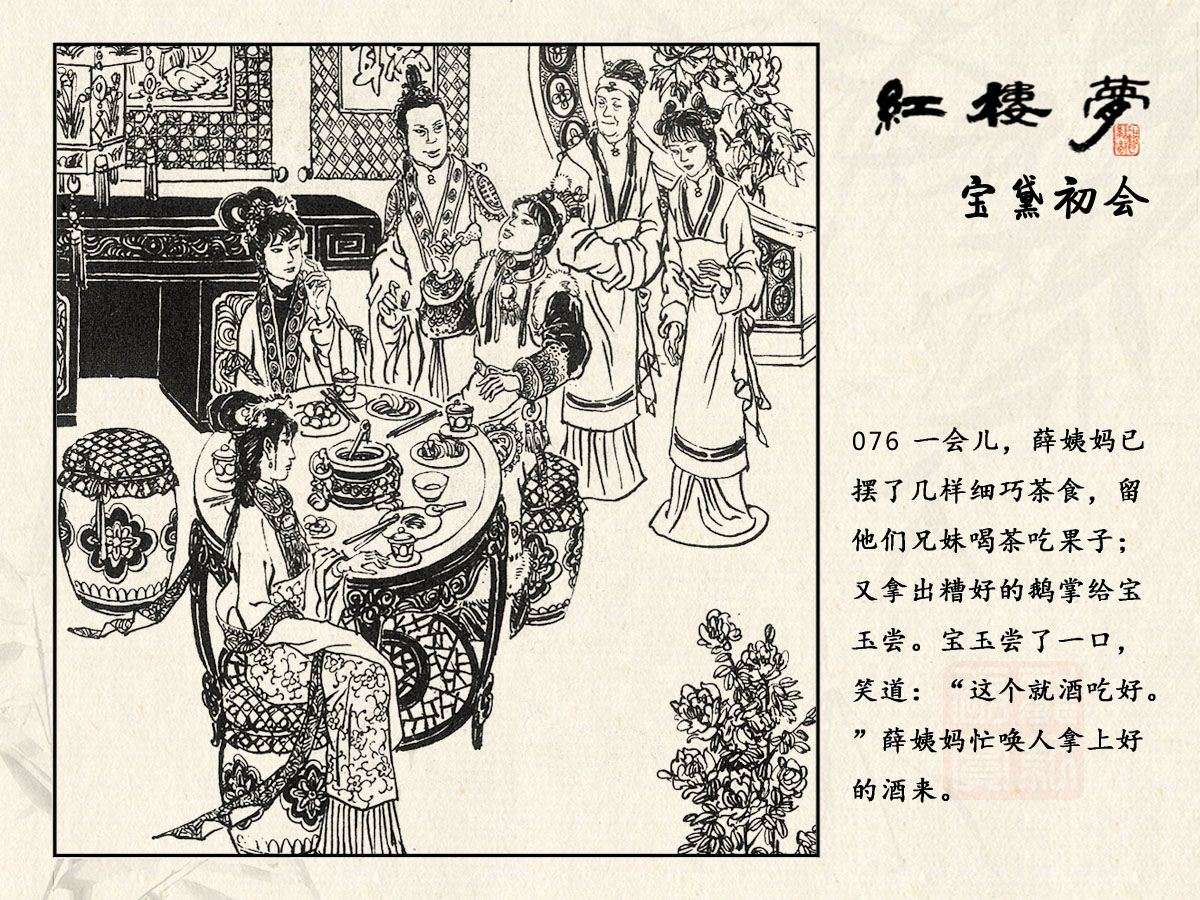 紅樓夢
宝黛初会
076 一会儿，薛姨妈已
摆了几样细巧茶食，留
他们兄妹喝茶吃果子；
又拿出糟好的鹅掌给宝
玉尝。宝玉尝了一口，
笑道：“这个就酒吃好。
”薛姨妈忙唤人拿上好
的酒来。